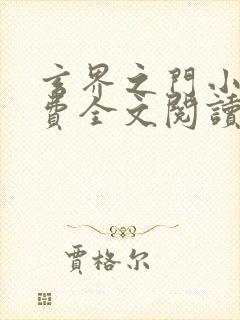 玄界之門小
費全文閱讀
賈格尔